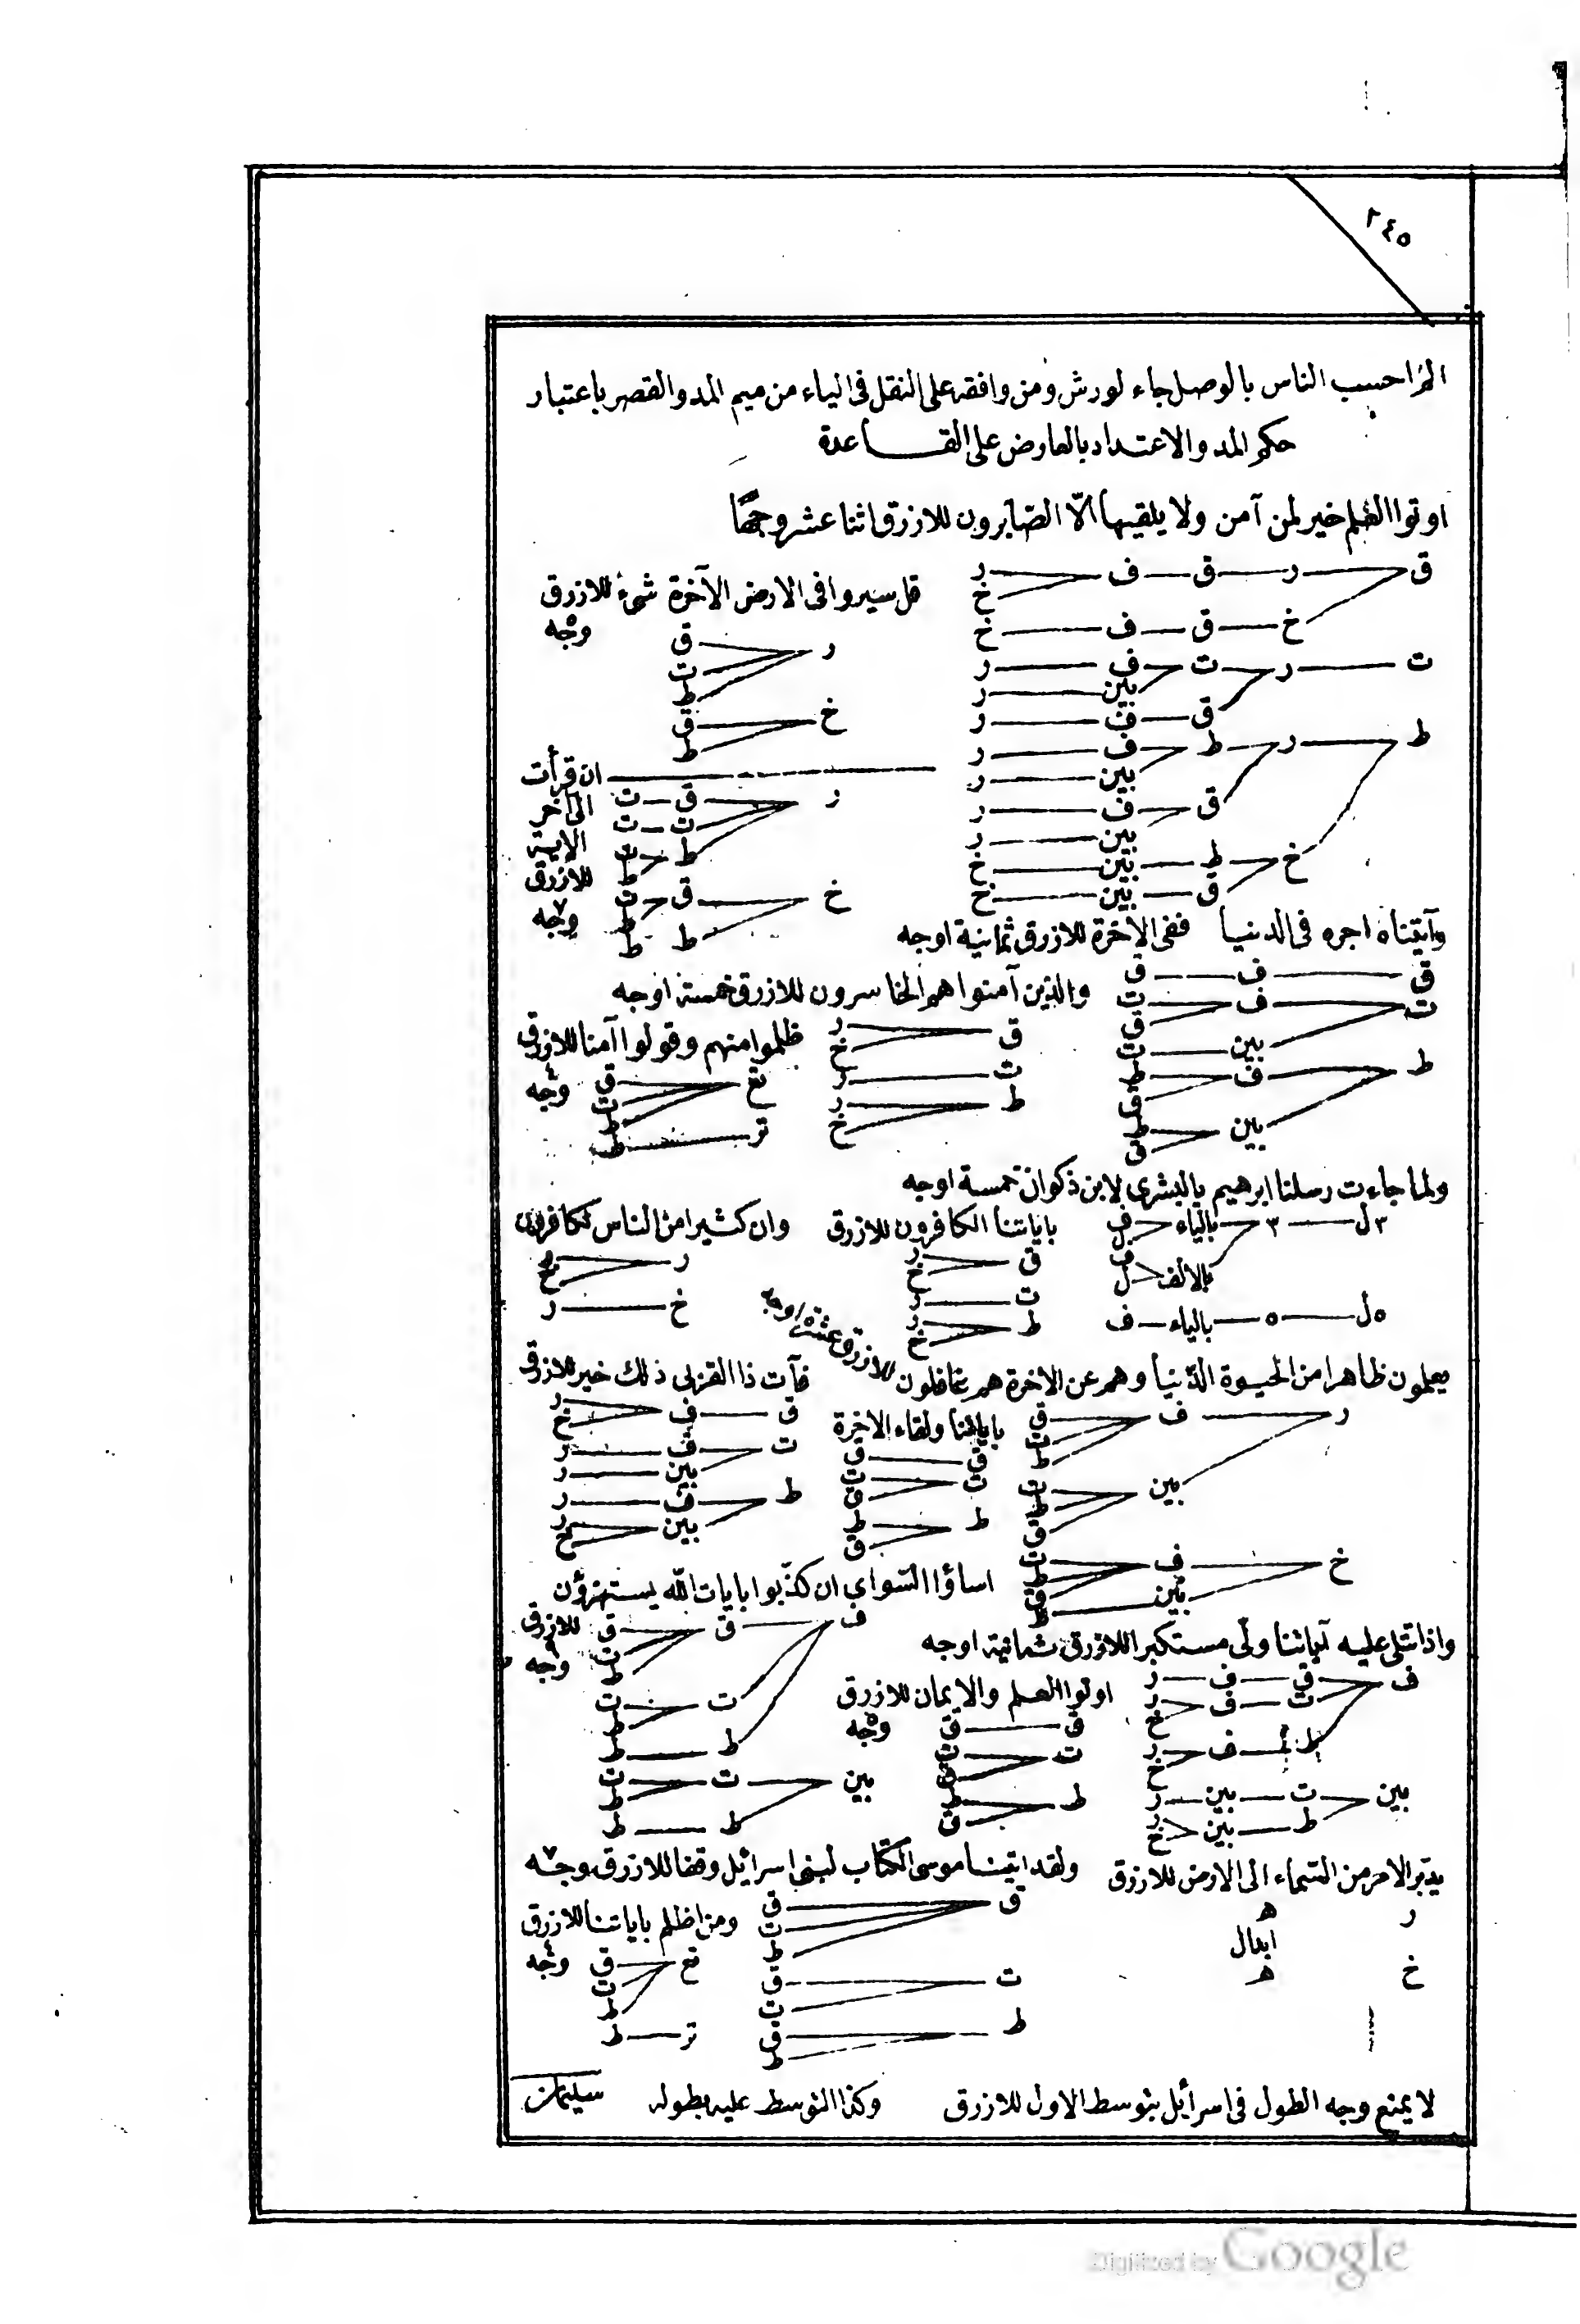 ٢٤٥
الم احسب الناس بالوصل جاء لورش ومن وافقه على النقل فى الياء من ميم المد والقصر باعتبار
حكم المد والاعتداد بالعارض على القاعدة
اوتوا العلم خير لمن آمن ولا يلقيها الّا الصّابرون للازرق اثنا عشر وجها
ق ر ق ف ر
خ
خ ق ف خ
ت ر ت ف ر
بين ر
ق ف ر
ط ر ط ف ر
بين ر
ق ف ر
بين ر
خ ط بين خ
ق بين خ
قل سيروا فى الارض الآخرة شئ للازرق
٥ وجه
ر ق
ت
ط
خ ق
ط
ان قرأت
الى آخر
الاية
للازرق
٧ وجه
ر ق ت
ت ت
ط ت
ط
خ ق ت
ط
ط ط
وآتيناه اجره فى الدنيا ففى الآخرة للازرق ثمانية اوجه
ق ف ق
ت ف ت
ق
بين ت
ط ف ط
ق
بين ط
ق
والذين آمنوا هم الخاسرون للازرق خمسة اوجه
ق ر
خ
ت ر
ط ر
خ
ظلموا منهم وقولوا آمنا للازرق
٤ وجه
تغ ق
ت
ط
تر ط
ولما جاءت رسلنا ابرهيم بالبشرى لابن ذكوان خمسة اوجه
٣ ل ٣ بالياء ف
ل
بالالف ف
ل
٥ ل ٥ بالياء ف
باياتنا الكافرون للازرق
ق ر
خ
ت ر
ط ر
خ
وان كثيرا من الناس لكافرون
ر ر
خ
خ ر
يعلمون ظاهرا من الحيوة الدّنيا وهم عن الاخرة هم غافلون للازرق عشرة اوجه
ر ف ق
ت
ط
بين ت
ط
ق
خ ف ت
ط
ق
بين ط
باياتنا ولقاء الاخرة
ق ق
ت ت
ق
ط ط
ق
فآت ذا القربى ذلك خير للازرق
ق ف ر
خ
ت ف ر
بين ر
ط ف ر
بين ر
خ
اساؤا السّواى ان كذّبوا بايات اللّه يستهزؤن
للازرق
٩ وجه
ف ق ق
ت
ط
ت ت
ط
ط ط
بين ت ت
ط
ط ط
واذا تتلى عليه آياتنا ولّى مستكبرا للازرق ثمانية اوجه
ف ق ف ر
ت ف ر
خ
ط ف ر
خ
بين ت بين ر
ط بين ر
خ
اوتوا العلم والايمان للازرق
٥ وجه
ق ق
ت ت
ق
ط ط
ق
يدبّر الامر من السّماء الى الارض للازرق
ر ه
ابدال
خ ه
ولقد اتينا موسى الكتاب لبنى اسرائيل وقفا للازرق ٧ وجه
ق ق
ت
ط
ت ق
ت
ط ق
ط
ومن اظلم باياتنا للازرق
٤ وجه
تغ ق
ت
ط
تر ط
لا يمنع وجه الطول فى اسرائيل بتوسط الاول للازرق وكذا التوسط عليه بطوله
Digitized by Google